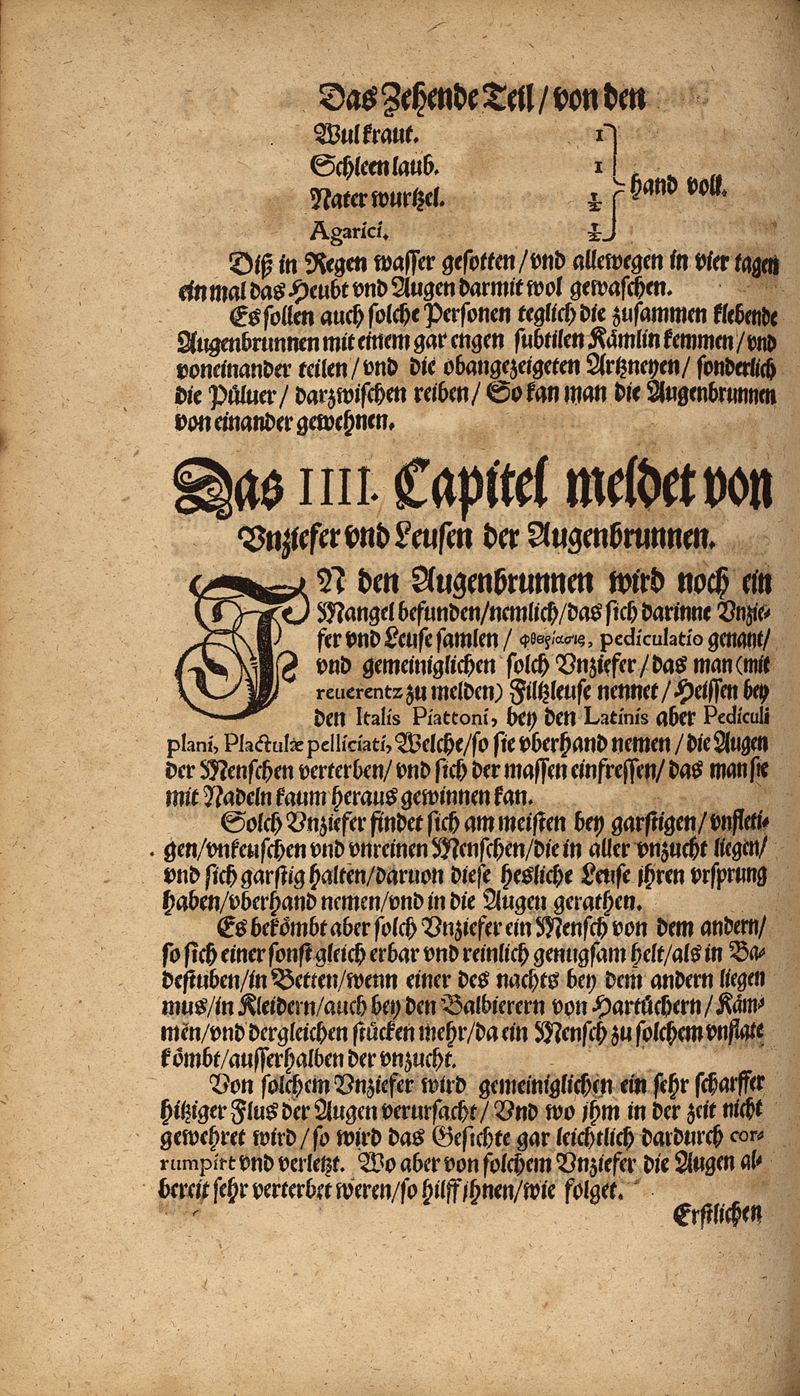 Das Zehende Teil / von den
Wulkraut. 1
Schleenlaub. 1
Naterwurtzel. ½ hand voll.
Agarici. ½
Diß in Regen wasser gesotten / vnd allewegen in vier tagen
ein mal das Heubt vnd Augen darmit wol gewaschen.
Es sollen auch solche Personen teglich die zusammen klebende
Augenbrunnen mit einem gar engen subtilen Kämlin kemmen / vnd
voneinander teilen / vnd die obangezeigeten Artzneyen / sonderlich
die Püluer / darzwischen reiben / So kan man die Augenbrunnen
von einander gewehnen.
Das IIII. Capitel meldet von
Vnziefer vnd Leusen der Augenbrunnen.
IN den Augenbrunnen wird noch ein
Mangel befunden/nemlich/das sich darinne Vnzie-
fer vnd Leuse samlen / φθειρίασις, pediculatio genant/
vnd gemeiniglichen solch Vnziefer / das man (mit
reuerentz zu melden) Filtzleuse nennet / Heissen bey
den Italis Piattoni, bey den Latinis aber Pediculi
plani, Plactulæ pelliciati, Welche/so sie vberhand nemen / die Augen
der Menschen verterben/ vnd sich der massen einfressen/ das man sie
mit Nadeln kaum heraus gewinnen kan.
Solch Vnziefer findet sich am meisten bey garstigen / vnfleti-
gen/vnkeuschen vnd vnreinen Menschen/die in aller vnzucht liegen/
vnd sich garstig halten/daruon diese hesliche Leuse jhren vrsprung
haben/vberhand nemen/vnd in die Augen gerathen.
Es bekömbt aber solch Vnziefer ein Mensch von dem andern/
so sich einer sonst gleich erbar vnd reinlich genugsam helt/als in Ba-
destuben/in Betten/wenn einer des nachts bey dem andern liegen
mus/in Kleidern/auch bey den Balbierern von Hartüchern / Käm-
men/vnd dergleichen stücken mehr/da ein Mensch zu solchem vnflate
kömbt/ausserhalben der vnzucht.
Von solchem Vnziefer wird gemeiniglichen ein sehr scharffer
hitziger Flus der Augen verursacht / Vnd wo jhm in der zeit nicht
gewehret wird / so wird das Gesichte gar leichtlich dardurch cor-
rumpirt vnd verletzt. Wo aber von solchem Vnziefer die Augen al-
bereit sehr verterbet weren/so hilff jhnen/wie folget.
Erstlichen